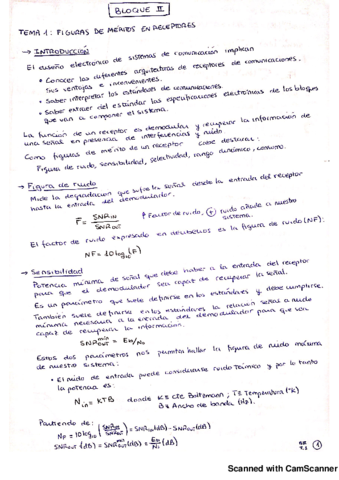 BLOQUE II
TEMA 1: FIGURAS DE MÉRITOS EN RECEPTORES
→ INTRODUCCIÓN
El diseño electronico de sistemas de comunicación implican
• Conocer las diferentes arquitecturas de receptores de comunicaciones.
Sus ventajas e inconvenientes.
• Saber interpretar los estándares de comunicaciones.
• Saber extraer del estándar las especificaciones electrónicas de los bloques
que van a componer el sistema.
La función de un receptor es demodular y recuperar la información de
una señal en presencia de interferencias y ruido
Como figuras de mérito de un receptor cabe destacar:
Figura de ruido, sensibilidad, selectividad, rango dinámico, consumo.
→ Figura de ruido
Mide la degradación que sufre la señal desde la entrada del receptor
hasta la entrada del demodulador.
F = SNR_IN / SNR_OUT ↑ Factor de ruido, ⊕ ruido añade a nuestro
sistema.
El factor de ruido expresado en decibelios es la figura de ruido (NF):
NF = 10 log10 (F)
→ Sensibilidad
Potencia mínima de señal que debe haber a la entrada del receptor
para que el demodulador sea capaz de recuperar la señal.
Es un parámetro que suele definirse en los estándares y debe cumplirse.
También suele definirse en los estándares la relación señal a ruido
mínima necesaria a la entrada del demodulador para que sea
capaz de recuperar la información.
SNR_OUT^min = Eb/No
Estos dos parámetros nos permite hallar la figura de ruido máxima
de nuestro sistema:
• El ruido de entrada puede considerarse ruido térmico y por lo tanto
la potencia es:
N_in = KTB donde K ≡ Cte Boltzmann; T ≡ Temperatura (ºK)
B ≡ Ancho de banda (Hz).
Partiendo de:
NF = 10 log10 (SNR_IN / SNR_OUT) = SNR_IN (dB) - SNR_OUT (dB)
1
Scanned with CamScanner